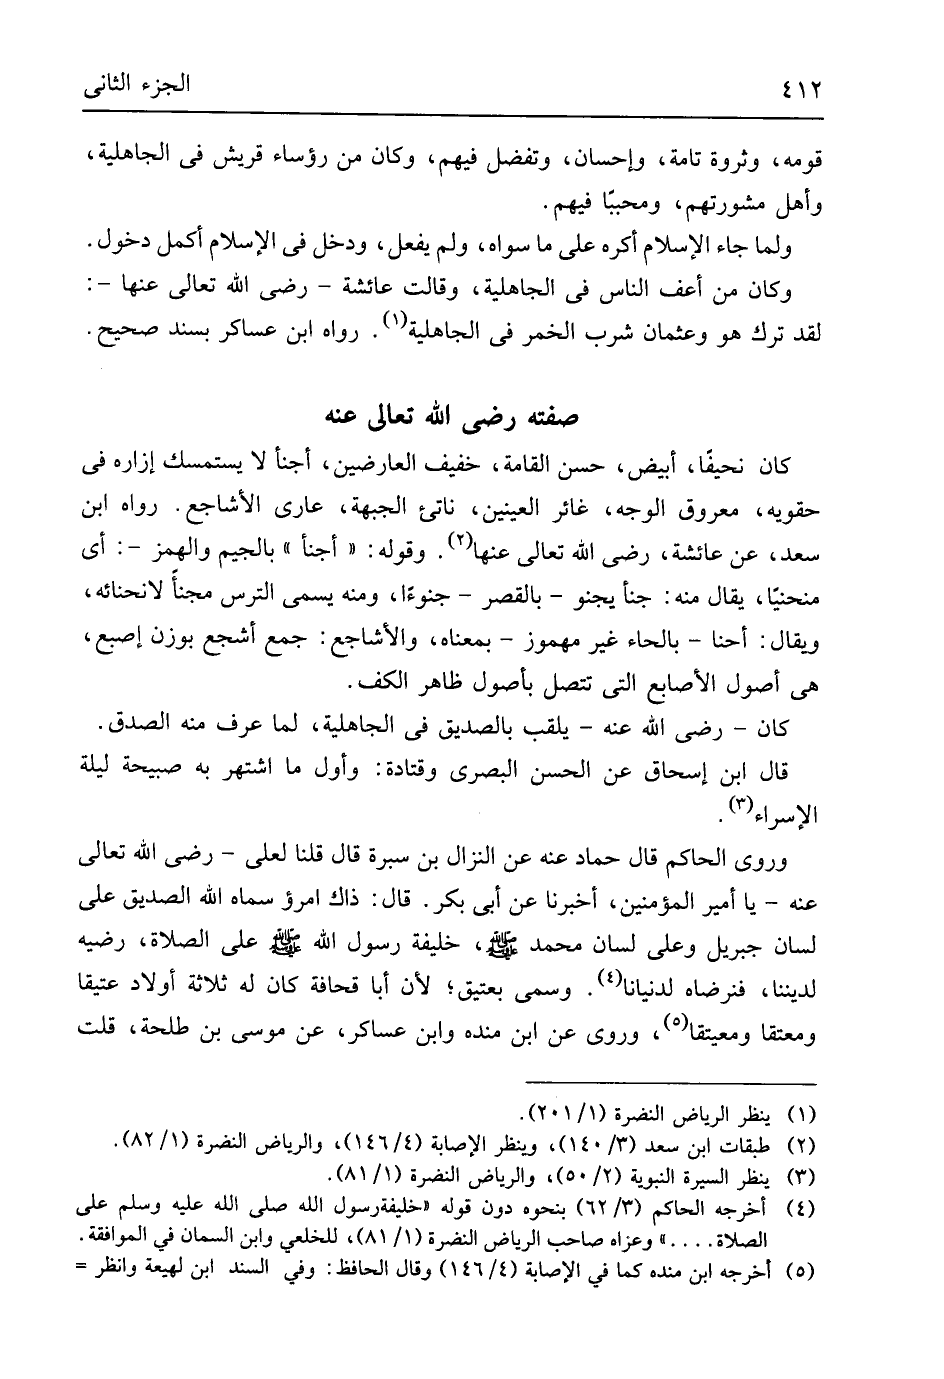 ٤١٢
الجزء الثانى
قومه، وثروة تامة، وإحسان، وتفضل فيهم، وكان من رؤساء قريش فى الجاهلية،
وأهل مشورتهم، ومحببًا فيهم.
ولما جاء الإسلام أكره على ما سواه، ولم يفعل، ودخل فى الإسلام أكمل دخول.
وكان من أعف الناس فى الجاهلية، وقالت عائشة – رضى الله تعالى عنها –:
لقد ترك هو وعثمان شرب الخمر فى الجاهلية(١). رواه ابن عساكر بسند صحيح.
صفته رضى الله تعالى عنه
كان نحيفًا، أبيض، حسن القامة، خفيف العارضين، أجنأ لا يستمسك إزاره فى
حقويه، معروق الوجه، غائر العينين، ناتئ الجبهة، عارى الأشاجع. رواه ابن
سعد، عن عائشة، رضى الله تعالى عنها(٢). وقوله: « أجنأ » بالجيم والهمز –: أى
منحنيًا، يقال منه: جنأ يجنو – بالقصر – جنوءًا، ومنه يسمى الترس مجنأً لانحنائه،
ويقال: أحنا – بالحاء غير مهموز – بمعناه، والأشاجع: جمع أشجع بوزن إصبع،
هى أصول الأصابع التى تتصل بأصول ظاهر الكف.
كان – رضى الله عنه – يلقب بالصديق فى الجاهلية، لما عرف منه الصدق.
قال ابن إسحاق عن الحسن البصرى وقتادة: وأول ما اشتهر به صبيحة ليلة
الإسراء(٣).
وروى الحاكم قال حماد عنه عن النزال بن سبرة قال قلنا لعلى – رضى الله تعالى
عنه – يا أمير المؤمنين، أخبرنا عن أبى بكر. قال: ذاك امرؤ سماه الله الصديق على
لسان جبريل وعلى لسان محمد ﷺ، خليفة رسول الله ﷺ على الصلاة، رضيه
لديننا، فنرضاه لدنيانا(٤). وسمى بعتيق؛ لأن أبا قحافة كان له ثلاثة أولاد عتيقا
ومعتقا ومعيتقا(٥)، وروى عن ابن منده وابن عساكر، عن موسى بن طلحة، قلت
(١) ينظر الرياض النضرة (١/ ٢٠١).
(٢) طبقات ابن سعد (٣/ ١٤٠)، وينظر الإصابة (٤/ ١٤٦)، والرياض النضرة (١/ ٨٢).
(٣) ينظر السيرة النبوية (٢/ ٥٠)، والرياض النضرة (١/ ٨١).
(٤) أخرجه الحاكم (٣/ ٦٢) بنحوه دون قوله «خليفةرسول الله صلى الله عليه وسلم على
الصلاة....» وعزاه صاحب الرياض النضرة (١/ ٨١)، للخلعي وابن السمان في الموافقة.
(٥) أخرجه ابن منده كما في الإصابة (٤/ ١٤٦) وقال الحافظ: وفي السند ابن لهيعة وانظر =